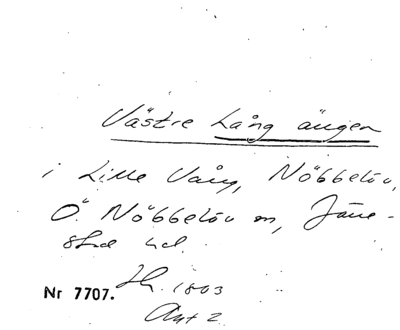 Västre Lång ängen
i Lille Vång, Nöbbelöv,
Ö. Nöbbelöv sn, Järre-
stad hd.
Nr 7707. Sk. 1803
Akt 2